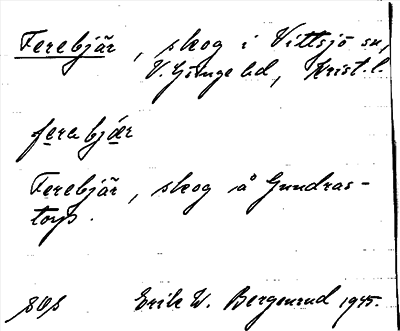 Ferebjär, skog i Vittsjö sn,
V. Göinge hd, Krist. l.
ferebjær
Ferebjär, skog å Gundras-
torp.
Erik W. Bergenrud 1945.